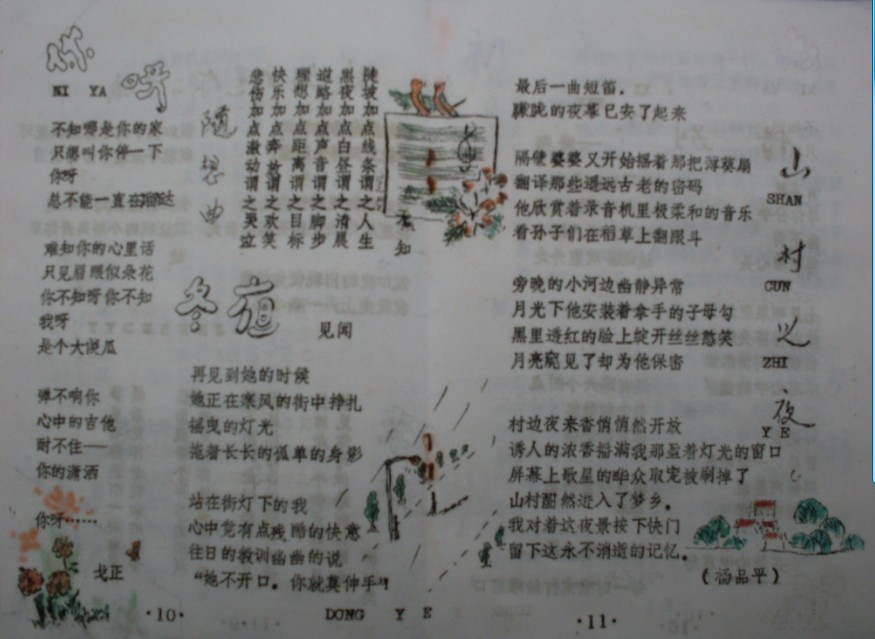 你呀
NI YA
不知哪是你的家
只想叫你停一下
你呀
总不能一直在溜达
难知你的心里话
只见眉眼似朵花
你不知呀你不知
我呀
是个大傻瓜
弹不响你
心中的吉他
耐不住——
你的潇洒
你呀……
戈正
·10·
随想曲
陡坡加点线条谓之人生
黑夜加点白昼谓之清晨
道路加点声音谓之脚步
理想加点距离谓之目标
快乐加点奔放谓之欢笑
悲伤加点激动谓之哭泣
无知
冬夜
见闻
再见到她的时候
她正在寒风的街中挣扎
摇曳的灯光
拖着长长的孤单的身影
站在街灯下的我
心中竟有点残酷的快意
往日的教训幽幽的说
“她不开口。你就莫伸手”
DONG YE
山村之夜
SHAN
CUN
ZHI
YE
最后一曲短笛。
朦胧的夜幕已安了起来
隔壁婆婆又开始摇着那把薄葵扇
翻译那些遥远古老的密码
他欣赏着录音机里极柔和的音乐
看孙子们在稻草上翻跟斗
旁晚的小河边幽静异常
月光下他安装着拿手的子母勾
黑里透红的脸上绽开丝丝憨笑
月亮窥见了却为他保密
村边夜来香悄悄然开放
诱人的浓香播满我那盈着灯光的窗口
屏幕上歌星的哗众取宠被剥掉了
山村酣然进入了梦乡。
我对着这夜景按下快门
留下这永不消逝的记忆。
（杨品平）
·11·